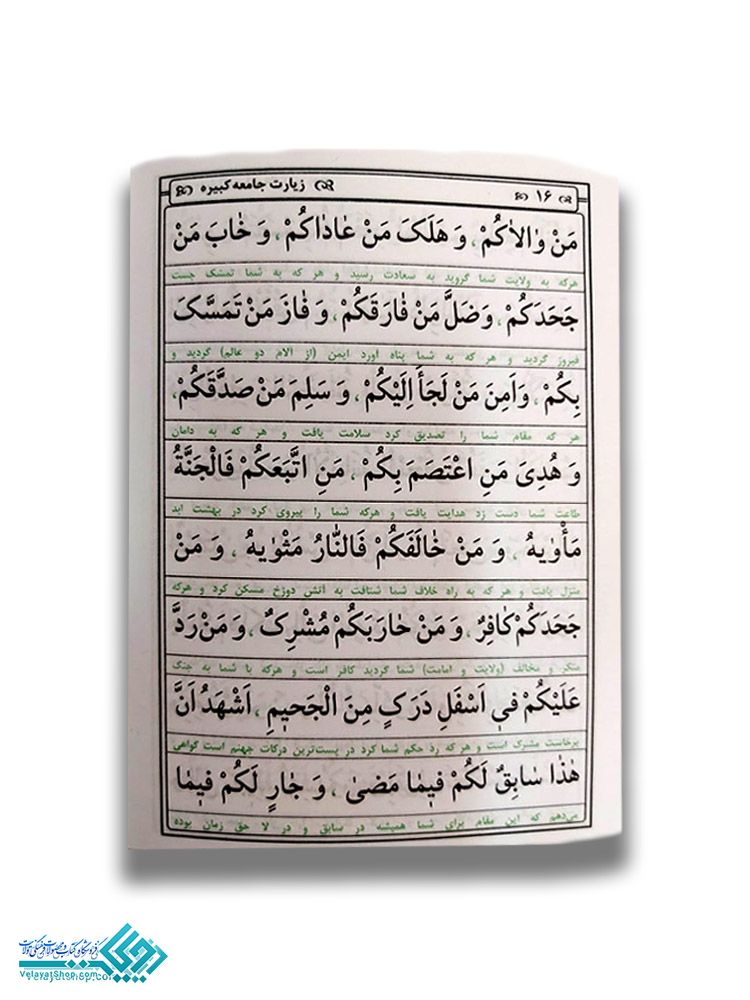 ۱۶ زیارت جامعه کبیره
مَنْ وٰالاٰکُمْ، وَ هَلَکَ مَنْ عٰادٰاکُمْ، وَ خٰابَ مَنْ
هرکه به ولایت شما گروید به سعادت رسید و هر که به شما تمسّک جست
جَحَدَکُمْ، وَ ضَلَّ مَنْ فٰارَقَکُمْ، وَ فٰازَ مَنْ تَمَسَّکَ
فیروز گردید و هر که به شما پناه آورد ایمن (از آلام دو عالم) گردید و
بِکُمْ، وَ اَمِنَ مَنْ لَجَأَ اِلَیْکُمْ، وَ سَلِمَ مَنْ صَدَّقَکُمْ،
هر که مقام شما را تصدیق کرد سلامت یافت و هر که به دامان
وَ هُدِیَ مَنِ اعْتَصَمَ بِکُمْ، مَنِ اتَّبَعَکُمْ فَالْجَنَّةُ
طاعت شما دست زد هدایت یافت و هرکه شما را پیروی کرد در بهشت ابد
مَأْوٰیهُ، وَ مَنْ خٰالَفَکُمْ فَالنّٰارُ مَثْوٰیهُ، وَ مَنْ
منزل یافت و هر که به راه خلاف شما شتافت به آتش دوزخ مسکن کرد و هرکه
جَحَدَکُمْ کٰافِرٌ، وَ مَنْ حٰارَبَکُمْ مُشْرِکٌ، وَ مَنْ رَدَّ
منکر و مخالف (ولایت و امامت) شما گردید کافر است و هرکه با شما به جنگ
عَلَیْکُمْ فیٖ اَسْفَلِ دَرَکٍ مِنَ الْجَحیٖمِ، اَشْهَدُ اَنَّ
برخاست مشرک است و هر که ردّ حکم شما کرد در پست‌ترین درکات جهنم است گواهی
هٰذٰا سٰابِقٌ لَکُمْ فیٖمٰا مَضیٰ، وَ جٰارٍ لَکُمْ فیٖمٰا
می‌دهم که این مقام برای شما همیشه در سابق و در لا حق زمان بوده
فروشگاه کتاب و محصولات فرهنگی ولایت
VelayatShop.com